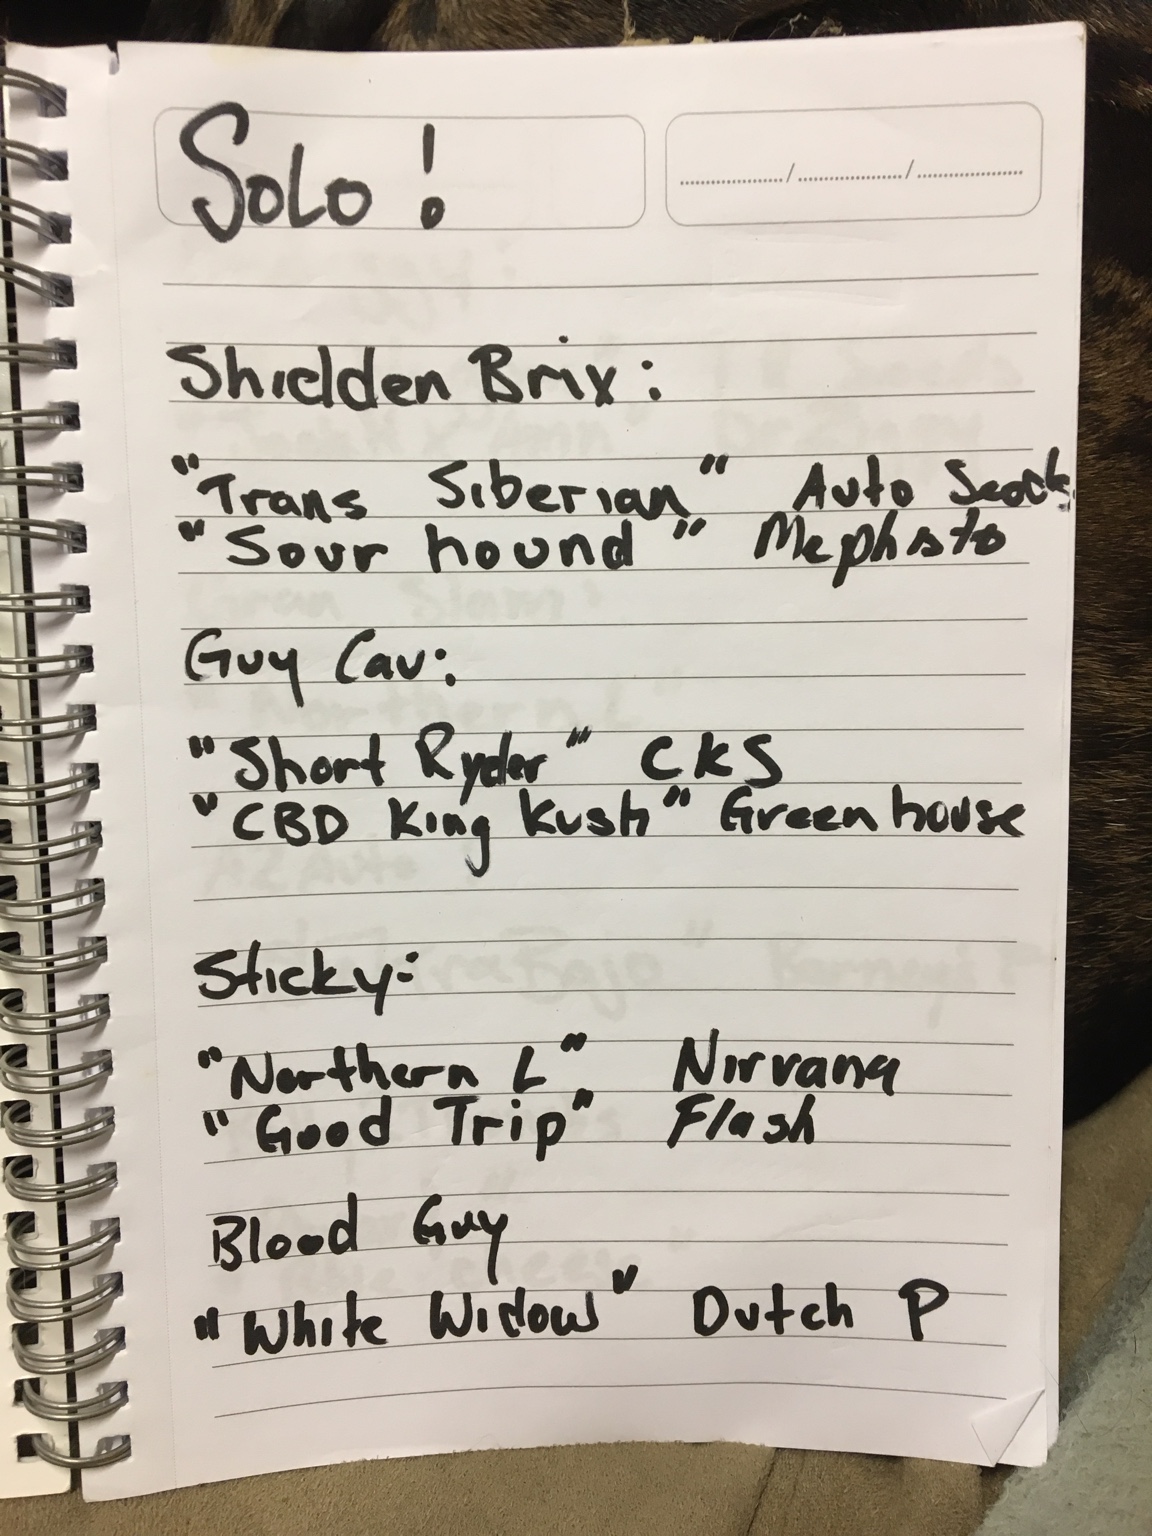 SoLo !
Shielden Brix :
"Trans Siberian" Auto Seeds
"Sour hound" Mephisto
Guy Cav:
"Short Ryder" CKS
"CBD King Kush" Greenhouse
Sticky:
"Northern L" Nirvana
"Good Trip" Flash
Blood Guy
"White Widow" Dutch P